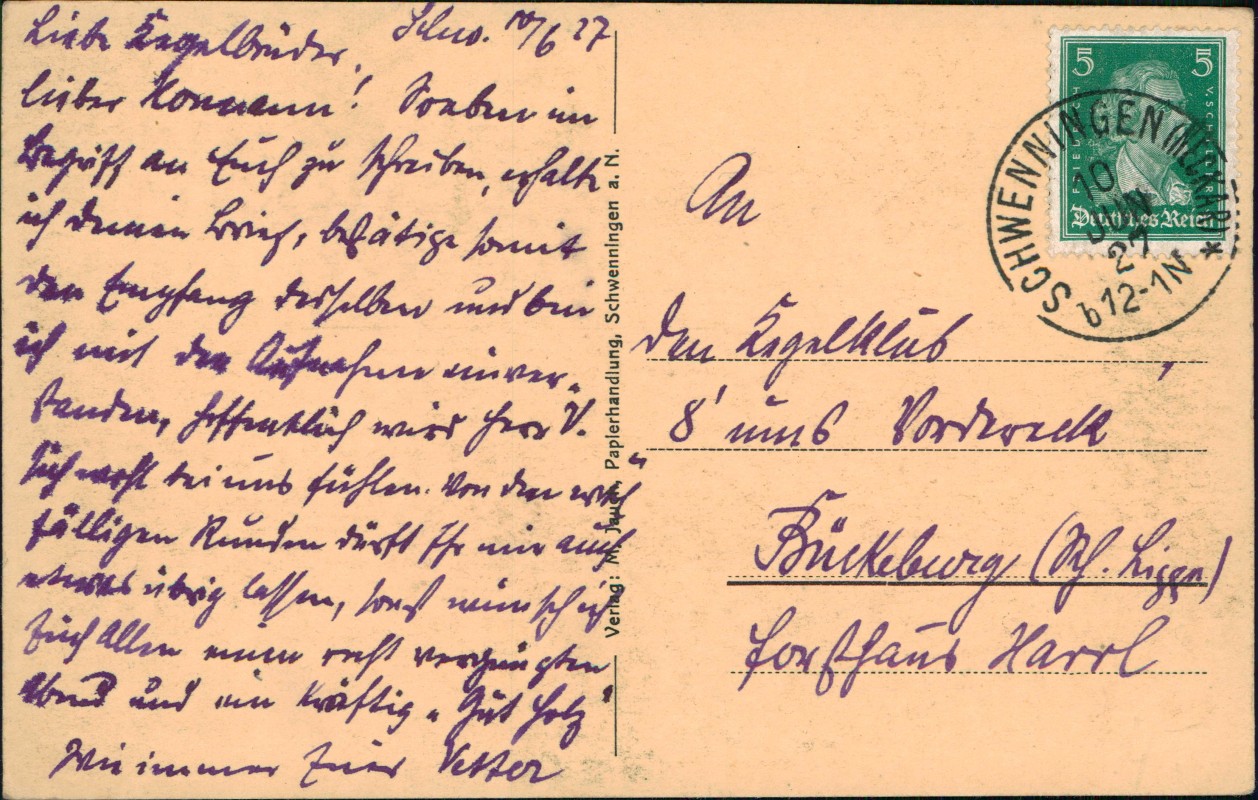 Schw. 10/6 27
Liebe Kegelbrüder,
lieber Hormann! Soeben im
Begriff an Euch zu schreiben, erhalte
ich deinen Brief, bestätige somit
den Empfang desselben und bin
ich mit der Aufnahme einver-
standen, hoffentlich wird Herr V.
sich wohl bei uns fühlen. Von den
fälligen Runden dürft Ihr mir auch
etwas übrig lassen, sonst wünsch ich
Euch Allen einen recht vergnügten
Abend und ein kräftig „Gut Holz“
Wie immer Euer Vetter
Verlag: M. Papierhandlung, Schwenningen a. N.
5 5
FRIEDRICH V. SCHILLER
Deutsches Reich
SCHWENNINGEN (NECKAR)
10
JUN
27
b 12-1N *
An
den Kegelklub
„8' ums Vordereck“
Bückeburg (Sch. Lippe)
Forsthaus Harrl